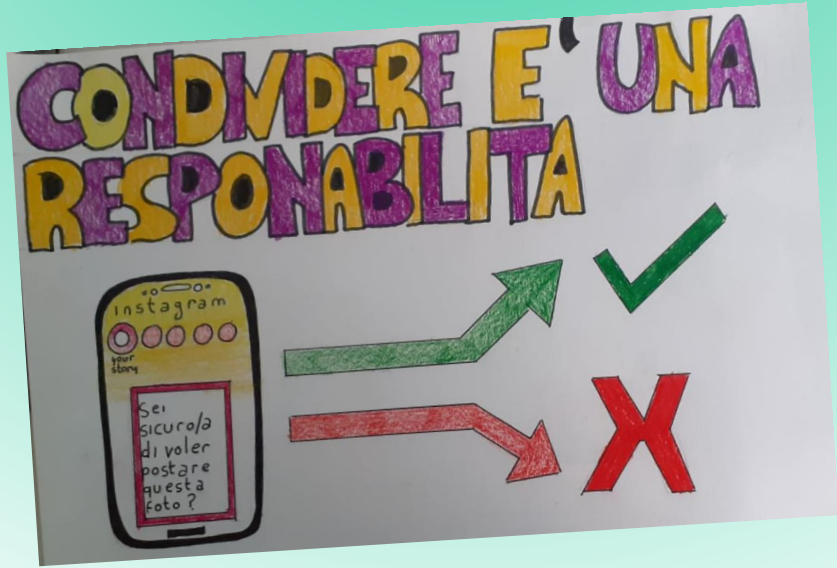 CONDIVIDERE E' UNA
RESPONABILITA
instagram
your
story
Sei
sicuro/a
di voler
postare
questa
foto ?